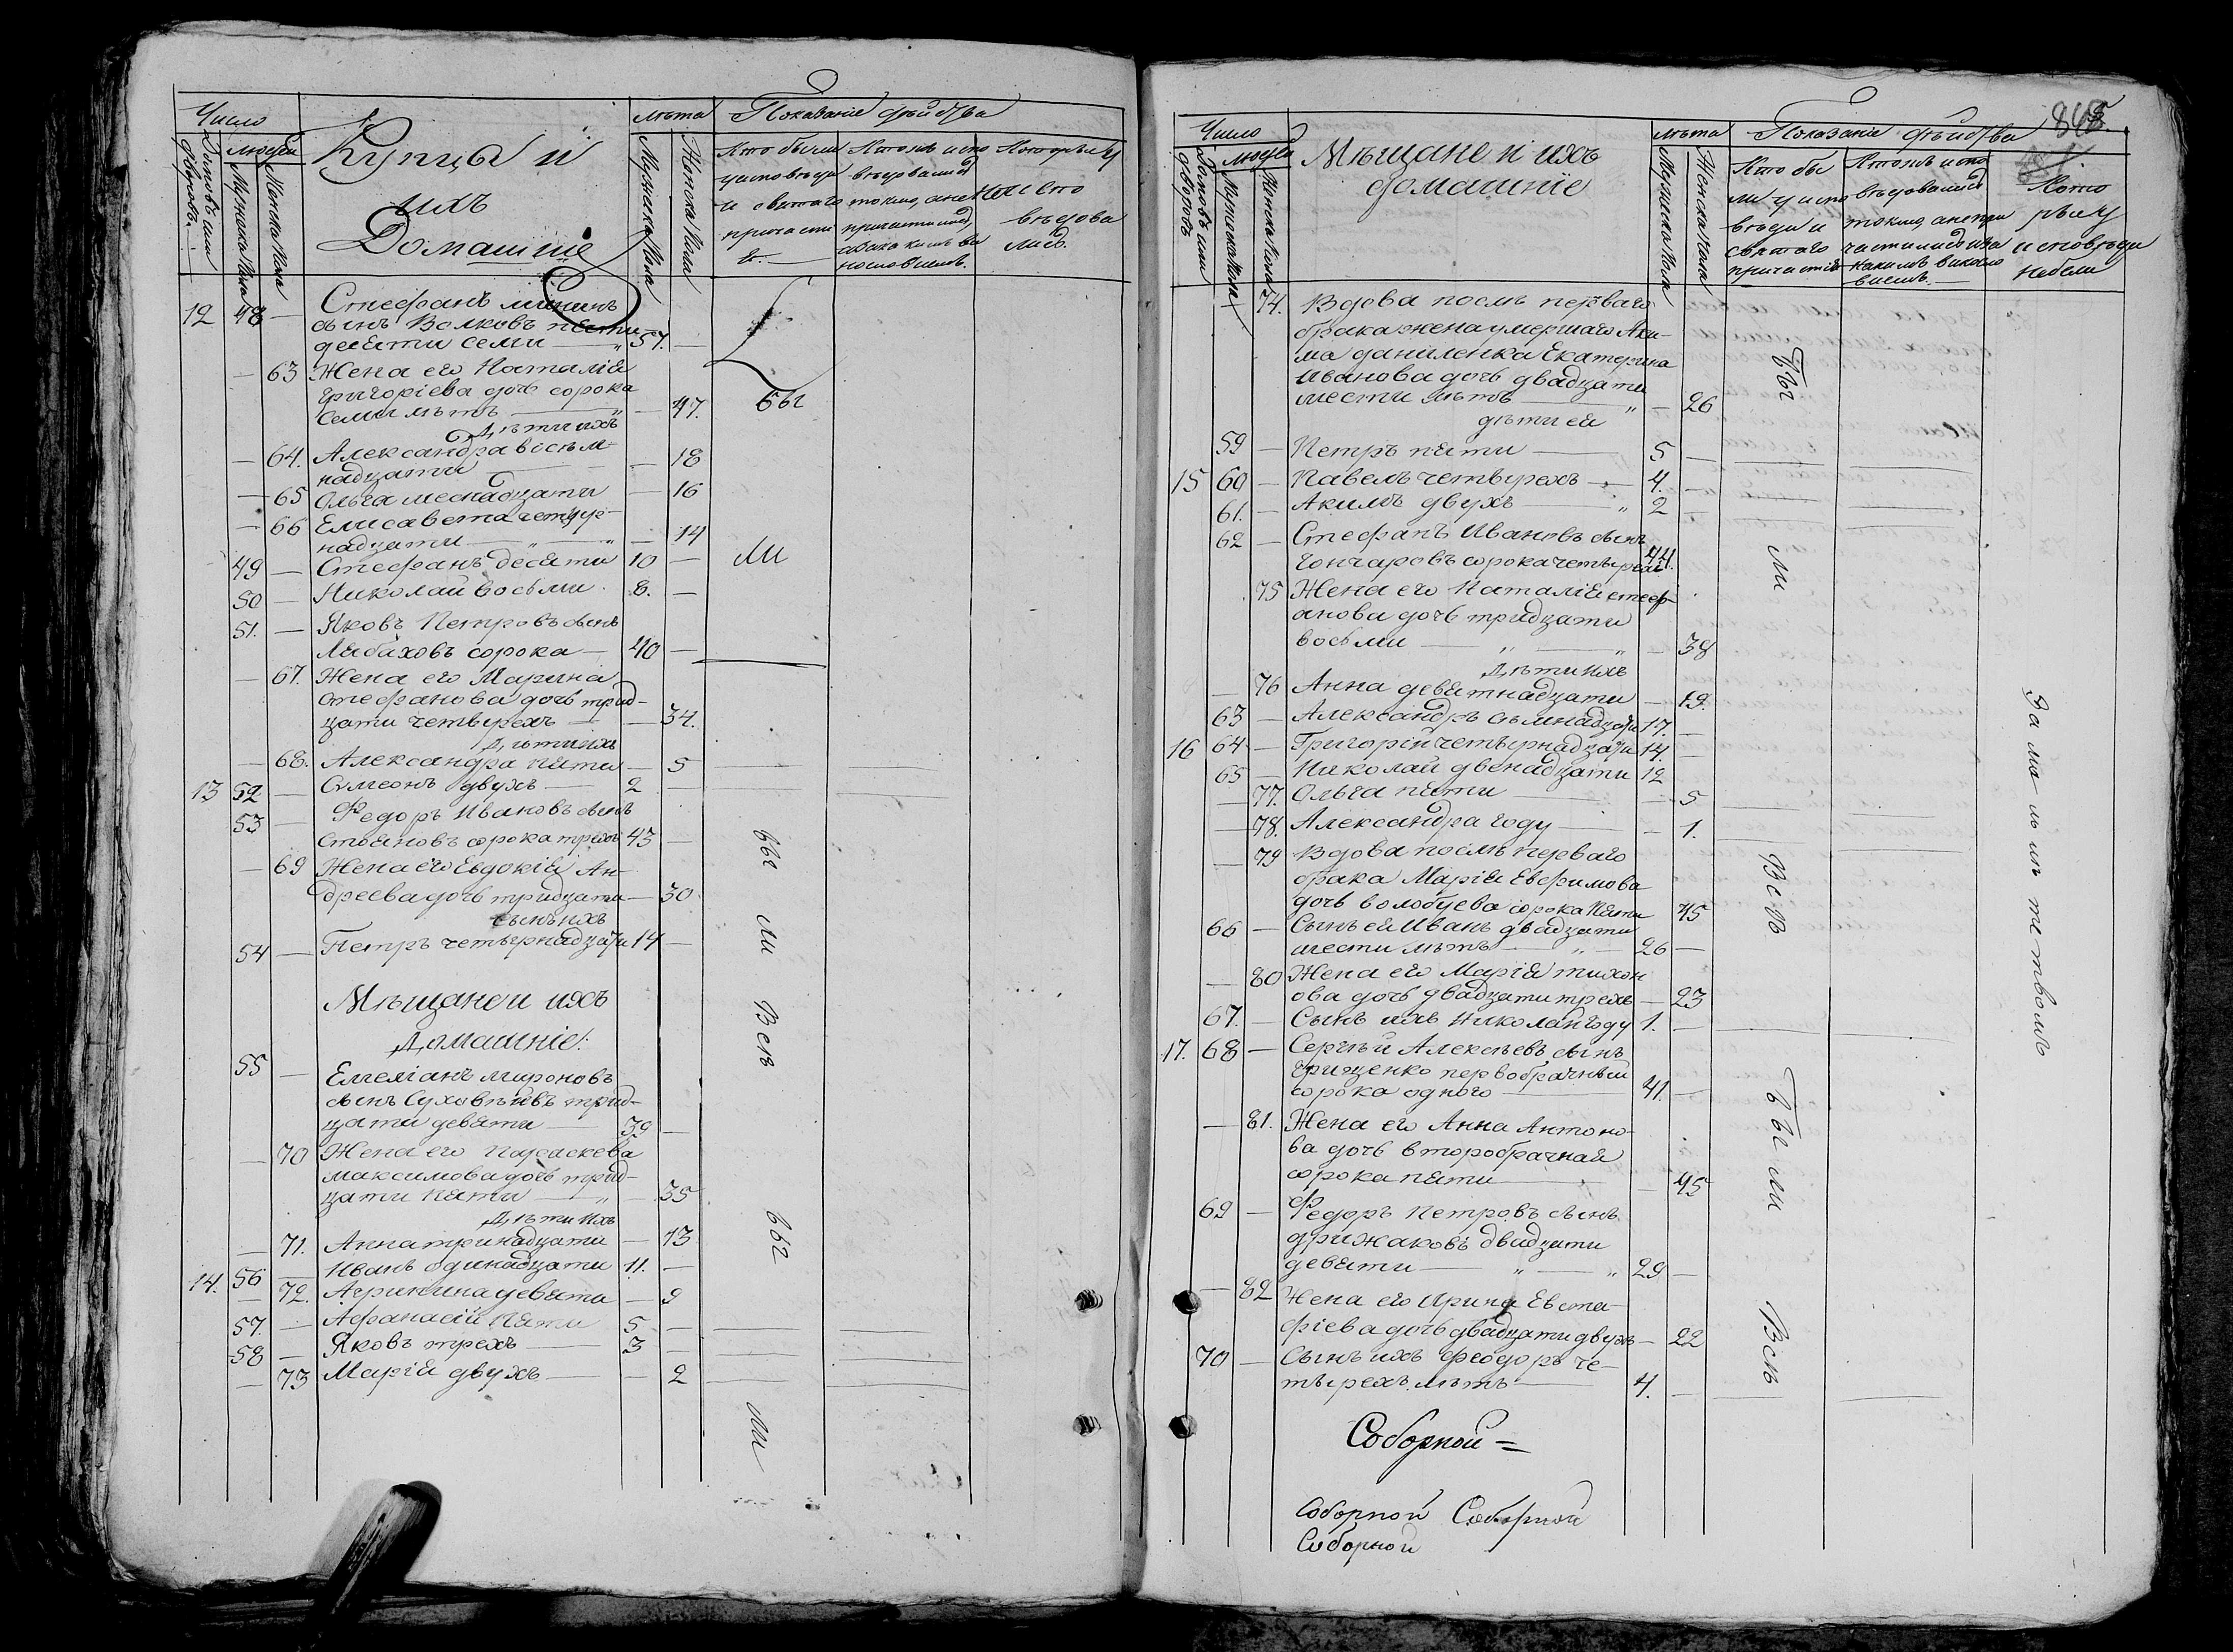 Число
лѣта
Показаніе дѣйства
Домовъ или дворовъ
людей
Мужеска пола
Женска пола
Купцы и
ихъ
Домашніе
Мужеска пола
Женска пола
Кто были
у исповѣди
и святаго
причасті
я.
Ктожъ испо
вѣдовались
токмо, а не
причастились
и за какимъ ви
нословіемъ.
Которые у
исповѣдова
лись
12 48 — Стефанъ Мининъ
сынъ Волковъ пяти
десяти семи — 57. —
— 63 Жена его Наталія
Григоріева дочь сорока
семи лѣтъ — 47.
Дѣти ихъ
— 64. Александра восьм-
надцати — 18
— 65 Ольга шеснадцати — 16
— 66 Елисавета четыр-
надцати — 14
49 — Стефанъ десяти 10 —
50 — Николай восьми 8. —
51. — Яковъ Петровъ сынъ
Лябаховъ сорока — 40 —
— 67. Жена его Марина
Стефанова дочь трид-
цати четырехъ — 34.
Дѣти ихъ
— 68. Александра пяти — 5
13 52 — Симеонъ двухъ — 2 —
53 — Федоръ Ивановъ сынъ
Стояновъ сорока трехъ 43 —
— 69 Жена его Евдокія Ан-
дреева дочь тридцати — 30
сынъ ихъ
54 — Петръ четырнадцати 14 —
Мѣщане и ихъ
Домашніе:
55 — Емеліанъ Мироновъ
сынъ Суховѣевъ трид-
цати девяти — 39 —
— 70 Жена его Параскева
Максимова дочь трид-
цати пяти — 35
Дѣти ихъ
— 71. Анна тринадцати — 13
14. 56 — Иванъ одинадцати 11. —
— 72. Агрипина девяти — 9
57. — Афанасій пяти 5 —
58 — Яковъ трехъ — 3 —
— 73 Марія двухъ — 2
бы
ли
бы
ли
Всѣ
бы
ли
868.
Число
лѣта
Показаніе дѣйства
Домовъ или дворовъ
людей
Мужеска пола
Женска пола
Мѣщане и ихъ
домашніе
Мужеска пола
Женска пола
Кто бы
ли у испо
вѣди и
святаго
причастія
Ктожъ испо
вѣдовались
токмо, а непри
частились и за
какимъ винос
віемъ.
Кото
рые у
исповѣди
небыли
— 74. Вдова послѣ перваго
брака жена умершаго Аки-
ма Даниленка Екатерина
Иванова дочь двадцати
шести лѣтъ — 26
дѣти ей
59 — Петръ пяти — 5 —
15 60 — Павелъ четырехъ — 4. —
61. — Акимъ двухъ — 2 —
62 — Стефанъ Ивановъ сынъ
Гончаровъ сорока четырехъ 44.
75 Жена его Наталія Стеф-
анова дочь тридцати
восьми — 38
Дѣти ихъ
— 76 Анна девятнадцати — 19.
63 — Александръ семнадцати 17. —
16 64 — Григорій четырнадцати 14. —
65 — Николай двенадцати 12
— 77. Ольга пяти — 5
— 78. Александра году — 1.
— 79 Вдова послѣ перваго
брака Марія Евфимова
дочь Волобуева сорока пяти 45
66 — Сынъ ея Иванъ двадцати
шести лѣтъ — 26 —
— 80 Жена его Марія Тихон
ова дочь двадцати трехъ — 23
67. — Сынъ ихъ Николай году 1. —
17. 68 — Сергѣй Алексѣевъ сынъ
Грищенко первобрачный
сорока одного — 41. —
— 81. Жена его Анна Антоно-
ва дочь второбрачная
сорока пяти — 45
69 — Федоръ Петровъ сынъ
Дрижаковъ двадцати
девяти — 29 —
— 82 Жена его Ирина Евста-
фіева дочь двадцати двухъ — 22
70 — Сынъ ихъ Феодоръ че-
тырехъ лѣтъ — 4. —
бы
ли
Всѣ
бы ли
Всѣ
Соборной
Соборной Соборной
Соборной